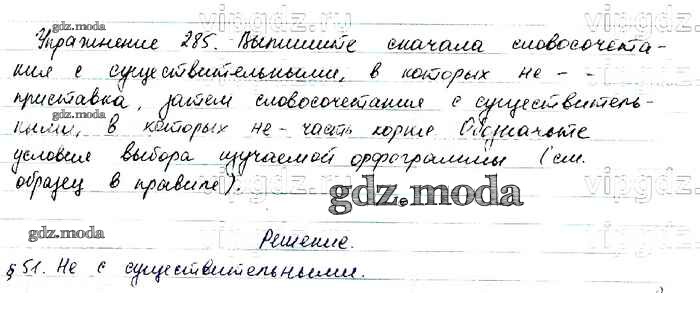 gdz.moda vipgdz.ru vipgdz.ru
Упражнение 285. Выпишите сначала словосочета-
ния с существительными, в которых не - -
приставка, затем словосочетания с существитель-
gdz.moda
ными, в которых не - часть корня. Обозначьте
условия выбора изучаемой орфограммы (см.
образец в правиле).
gdz.moda
vipgdz.ru
gdz.moda
Решение.
§ 51. Не с существительными.